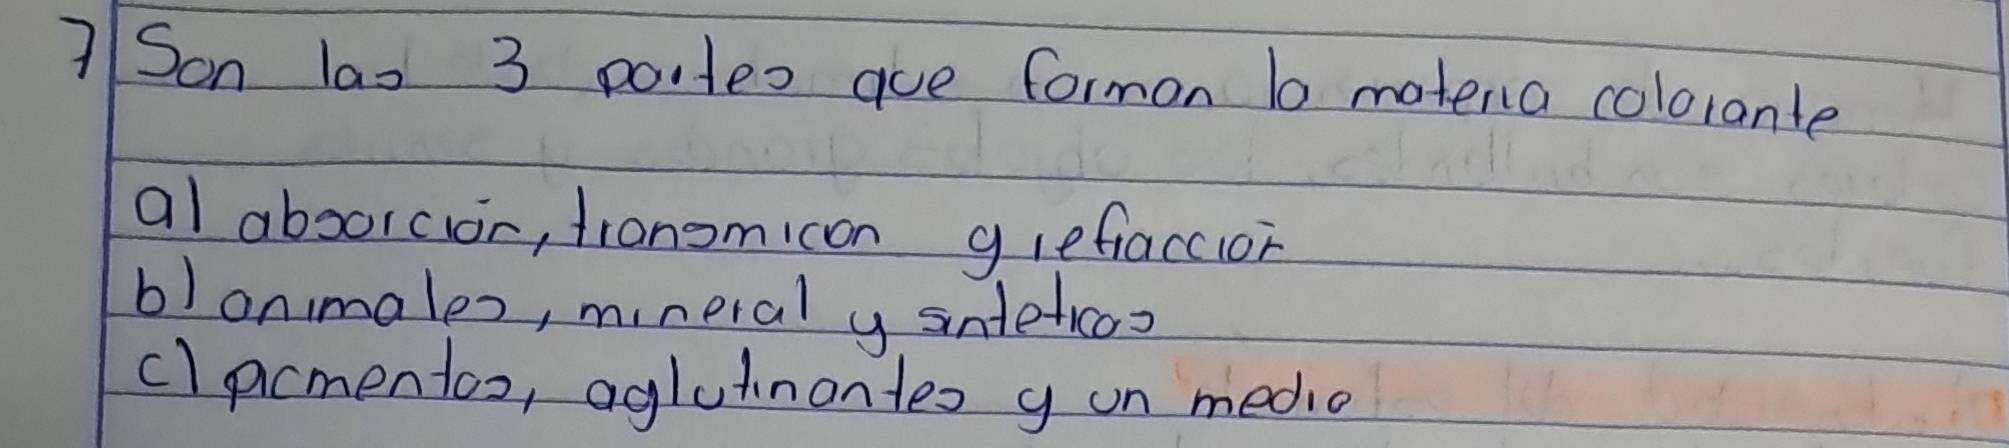 7 Son las 3 partes que forman la materia colorante
a) absorción, transmicon y refracción
b) animales, mineral y sinteticas
c) picmentos, aglutinantes y un medio